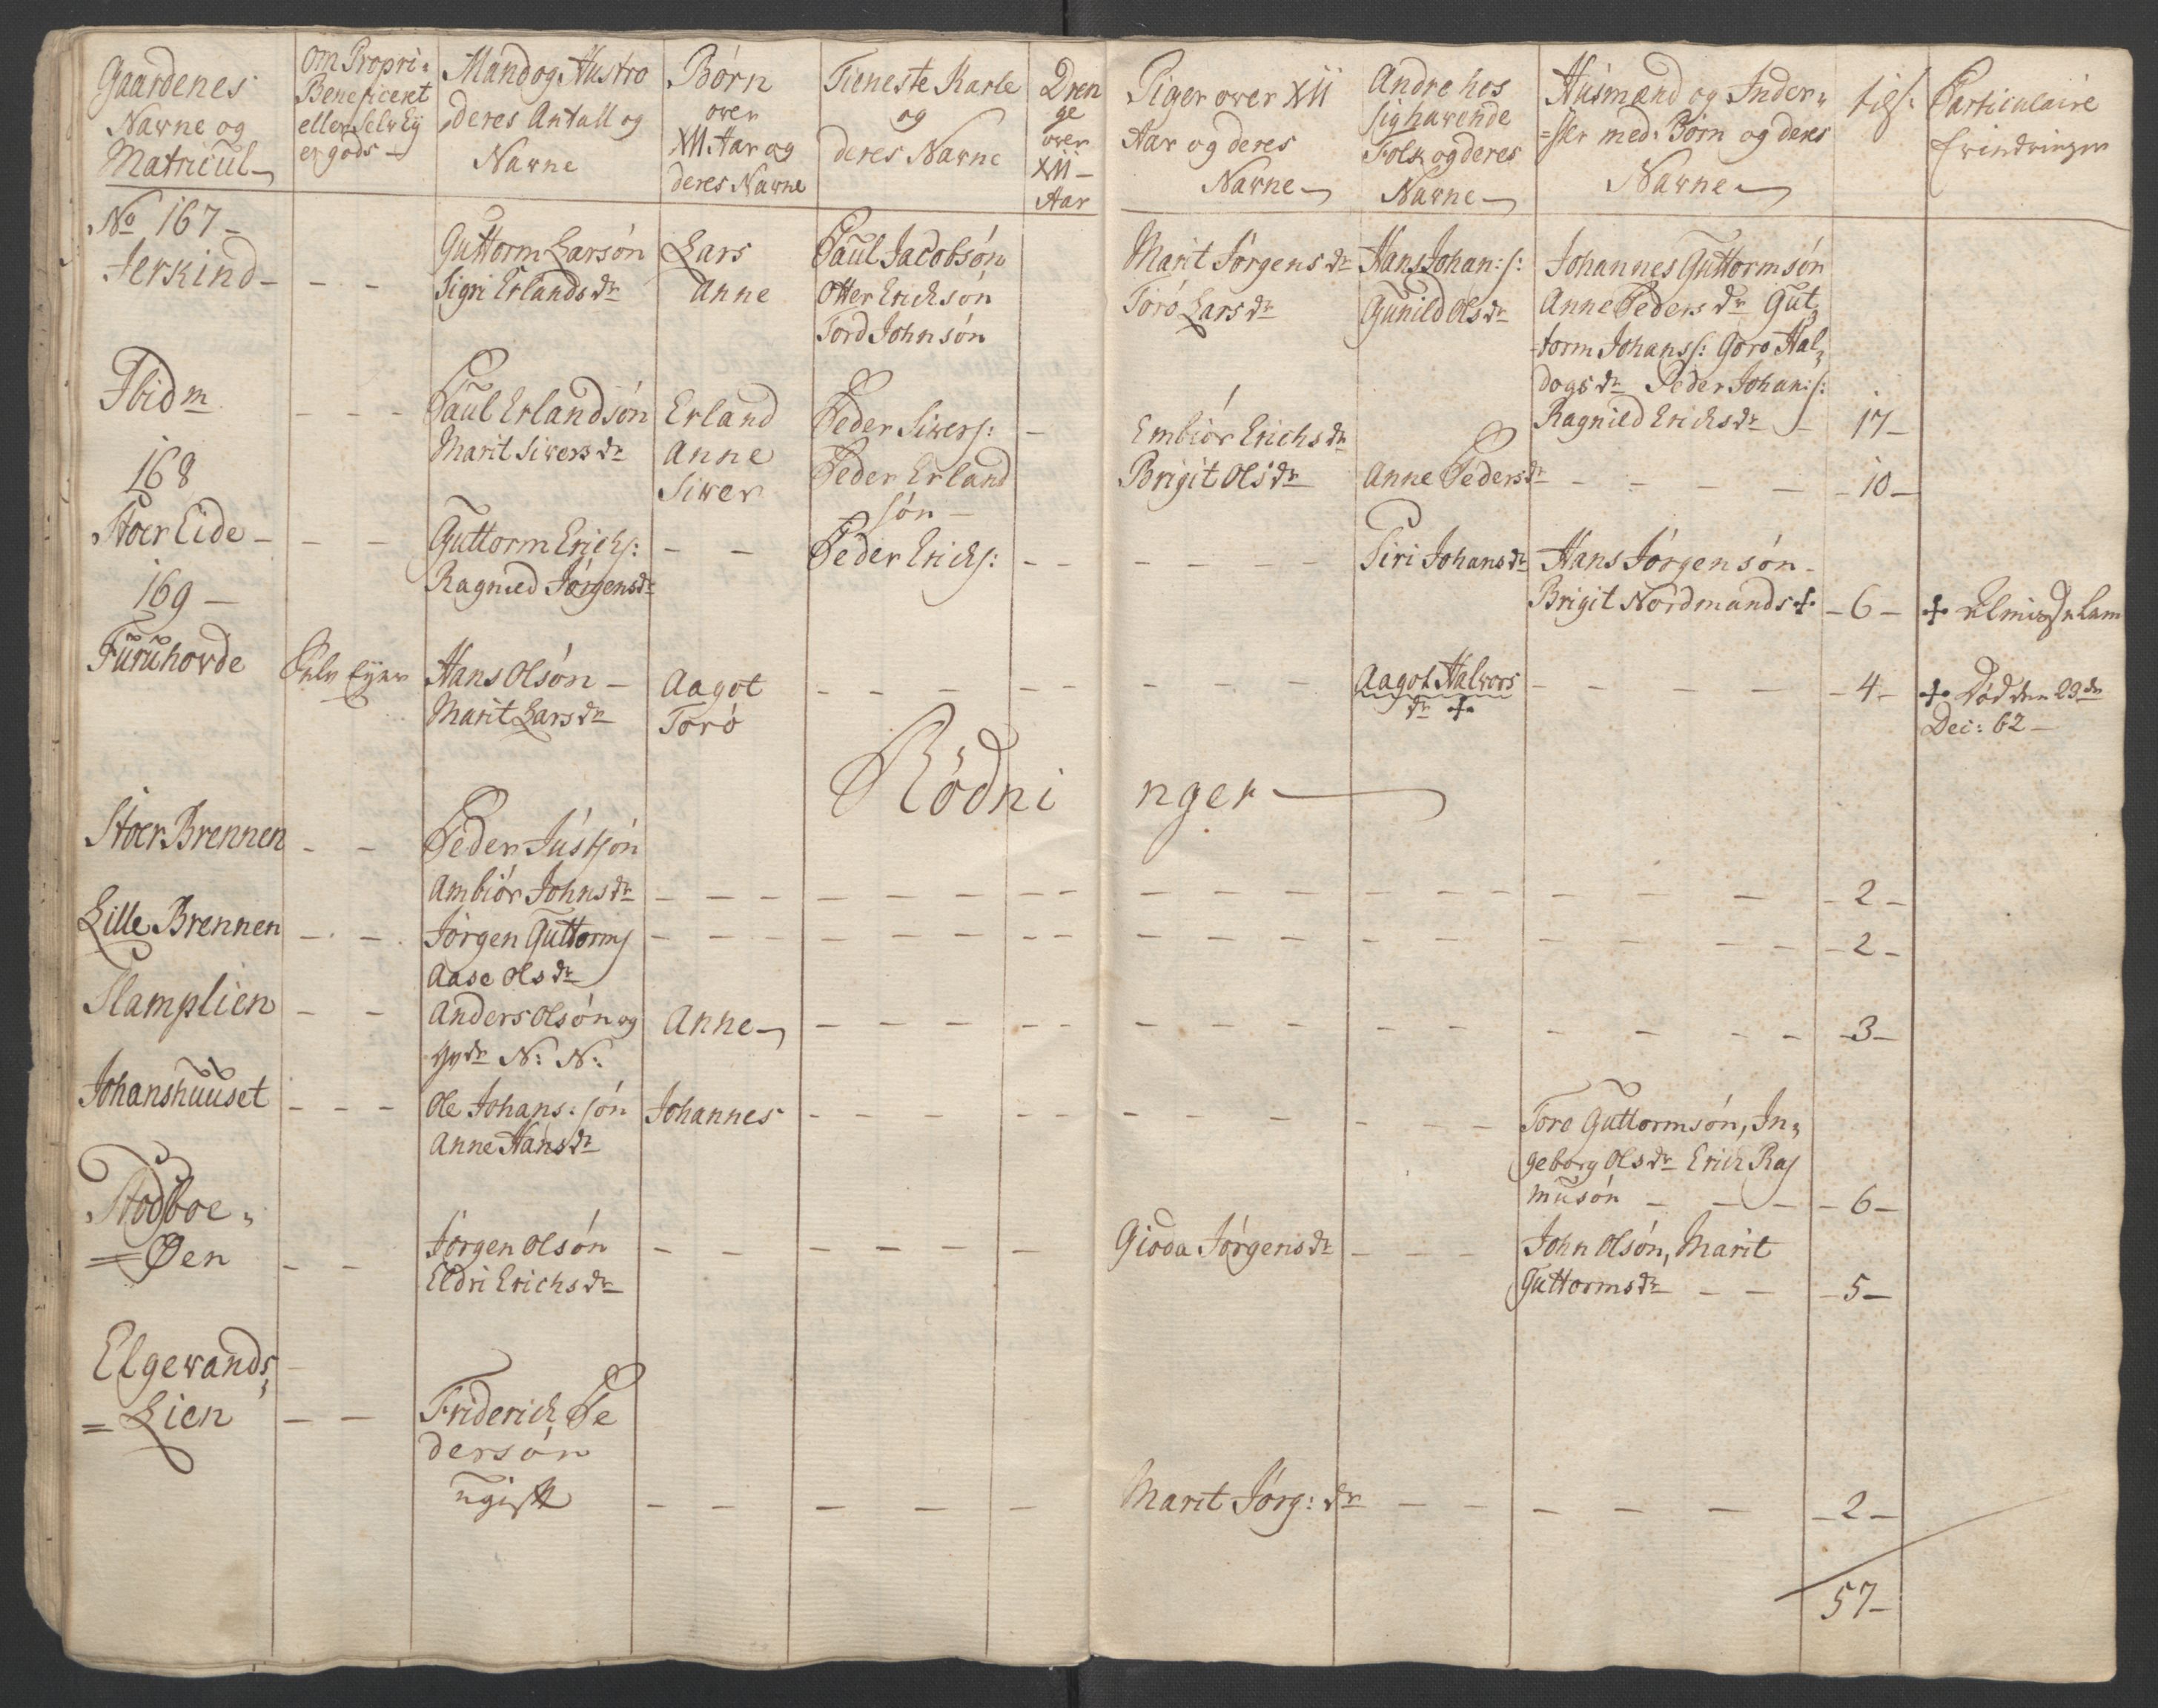 Gaardenes
Navne og
Matricul
Om Propri-
Beneficert
eller Selv Ey
er gods
Mand og Hustro
deres Antall og
Navne
Børn
over
XII Aar og
deres Navne
Tieneste Karle
og
deres Navne
Dren
ge
over
XII
Aar
Piger over XII
Aar og deres
Navne
Andre hos
sig havende
Folk og deres
Navne
Husmænd og Inder-
=ster med: Børn og deres
Navne
tils:
Particulaire
Erindringer
No 167
Jerkind - - -
Guttorm Larsøn
Sigri Erlandsdr
Lars
Anne
Paul Jacobsøn
Otter Erichsøn
Tord Johnsøn
Marit Jørgensdr
Torø Larsdr
Hans Johan:s:
Gunild Olsdr
Johannes Guttormsøn
Anne Pedersdr Gut-
torm Johans s: Goro Hal-
dogsdr Peder Johan:s:
Ragnild Erichsdr - 17 -
Ibidm - - -
Paul Erlandsøn
Marit Siversdr
Erland
Anne
Siver
Peder Sivers: -
Peder Erland
søn -
Embiør Erichsdr
Brigit Olsdr
Anne Pedersdr - - - - - 10 -
168
Stoer Eide - - -
Guttorm Erichs:
Ragnild Jørgensdr
- -
Peder Erichs: - - - - - - -
Siri Johansdr
Hans Jørgensøn -
Brigit Nordmands + - 6 -
+ Almisse Lam
169 -
Furuhovde
Selv Eyer
Hans Olsøn -
Marit Larsdr
Aagot
Torø
- - - - - - - - -
Aagot Halvors
dr +
- - - - - 4 -
+ Død den 29de
Dec: 62 -
Rødni nger
Stoer Brennen - -
Peder Justsøn
Ambiør Johnsdr - - - - - - - - - - - - - - - - - 2 -
Lille Brennen - -
Jørgen Guttorms
Aase Olsdr
- - - - - - - - - - - - - - - - - 2 -
Slamplien - -
Anders Olsøn og
N: N:
Anne - - - - - - - - - - - - - - - 3 -
Johanshuuset - - -
Ole Johans:søn
Anne Hansdr
Johannes - - - - - - - - - - - -
Tore Guttormsøn, In-
geborg Olsdr Erich Ras
musøn - - - - 6 -
Stodsboe-
=Øen - -
Jørgen Olsøn
Eldri Erichsdr
- - - - - -
Gioda Jørgensdr - - -
John Olsøn, Marit
Guttormsdr - - - 5 -
Elgevands-
=Lien - -
Friderich Pe
dersøn
ugift - - - - -
Marit Jørg: dr - - - - - - 2 -
57 -